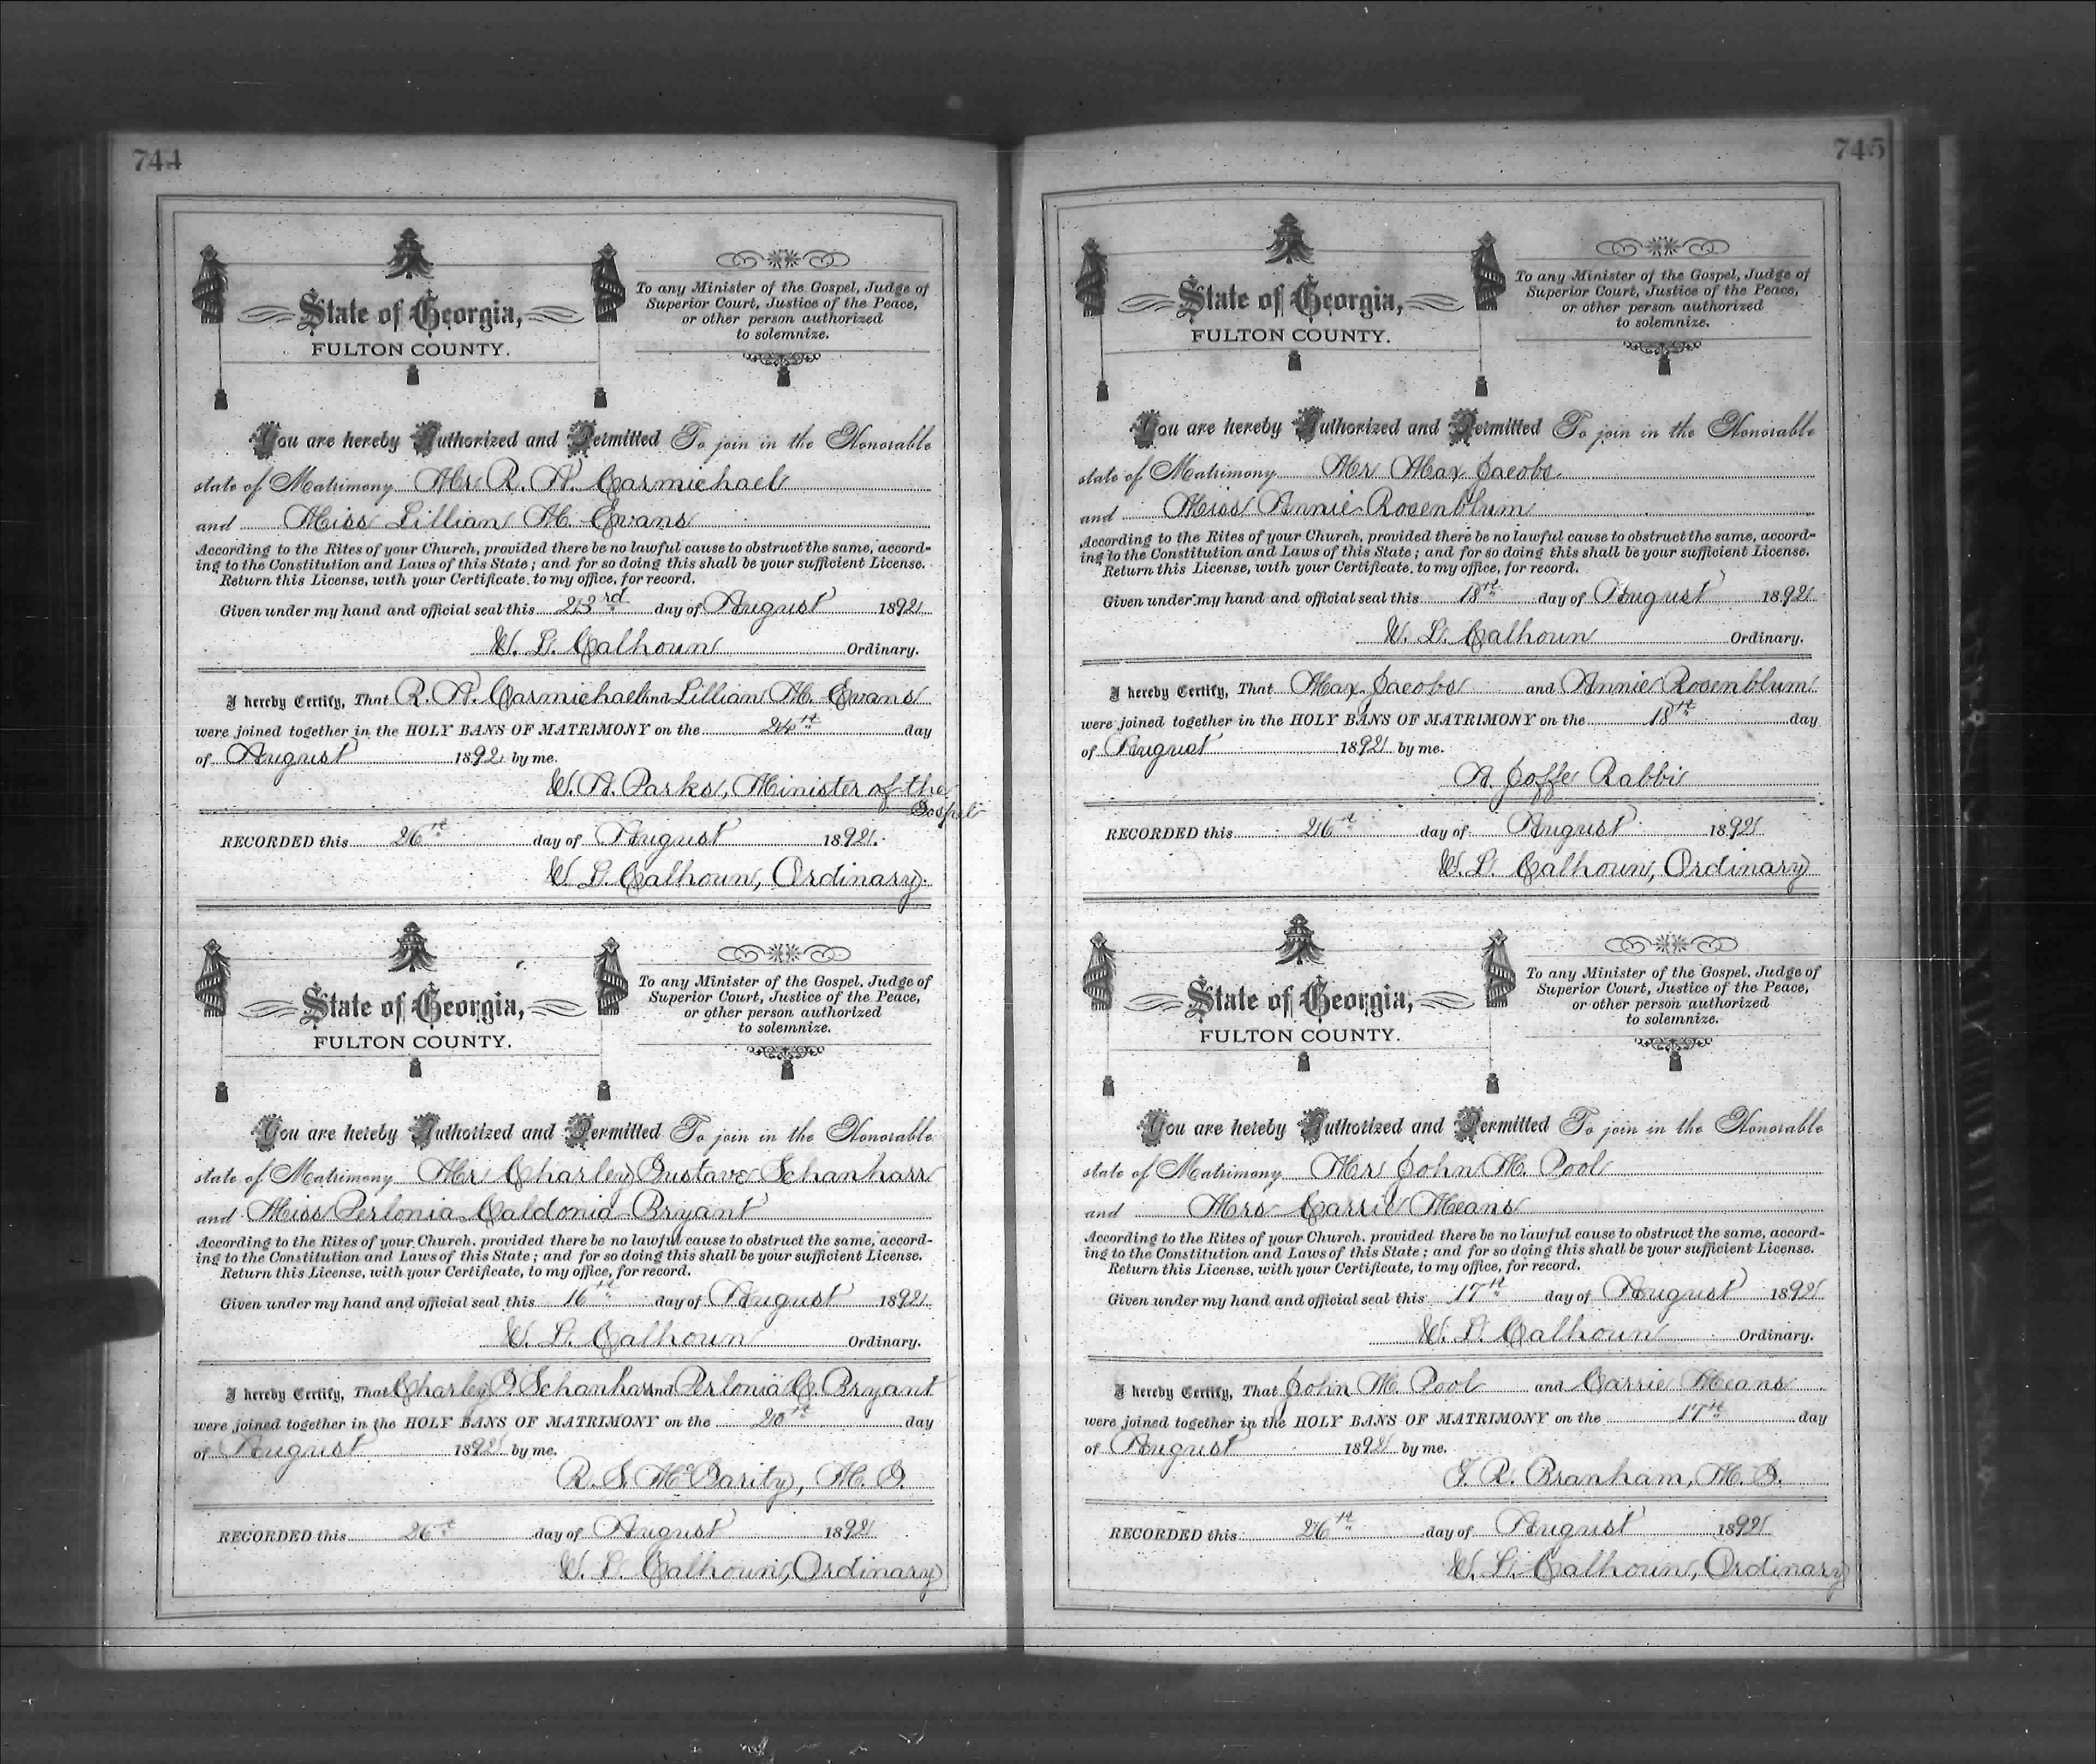 744
State of Georgia,
FULTON COUNTY.
To any Minister of the Gospel, Judge of
Superior Court, Justice of the Peace,
or other person authorized
to solemnize.
You are hereby Authorized and Permitted To join in the Honorable
state of Matrimony Mr. R. A. Carmichael
and Miss Lillian M. Evans
According to the Rites of your Church, provided there be no lawful cause to obstruct the same, accord-
ing to the Constitution and Laws of this State; and for so doing this shall be your sufficient License.
Return this License, with your Certificate, to my office, for record.
Given under my hand and official seal this 23rd day of August 1892
W. L. Calhoun Ordinary.
I hereby Certify, That R. A. Carmichael and Lillian M. Evans
were joined together in the HOLY BANS OF MATRIMONY on the 24th day
of August 1892 by me.
W. A. Parks, Minister of the
Gospel
RECORDED this 26th day of August 1892.
W. L. Calhoun, Ordinary.
State of Georgia,
FULTON COUNTY.
To any Minister of the Gospel, Judge of
Superior Court, Justice of the Peace,
or other person authorized
to solemnize.
You are hereby Authorized and Permitted To join in the Honorable
state of Matrimony Mr Charley Gustave Schanharr
and Miss Perlonia Caldonia Bryant
According to the Rites of your Church, provided there be no lawful cause to obstruct the same, accord-
ing to the Constitution and Laws of this State; and for so doing this shall be your sufficient License.
Return this License, with your Certificate, to my office, for record.
Given under my hand and official seal this 16th day of August 1892
W. L. Calhoun Ordinary.
I hereby Certify, That Charley G. Schanharr and Perlonia C. Bryant
were joined together in the HOLY BANS OF MATRIMONY on the 20th day
of August 1892 by me.
R. S. McGarity, M. G.
RECORDED this 26th day of August 1892
W. L. Calhoun, Ordinary
745
State of Georgia,
FULTON COUNTY.
To any Minister of the Gospel, Judge of
Superior Court, Justice of the Peace,
or other person authorized
to solemnize.
You are hereby Authorized and Permitted To join in the Honorable
state of Matrimony Mr Max Jacobs
and Miss Annie Rosenblum
According to the Rites of your Church, provided there be no lawful cause to obstruct the same, accord-
ing to the Constitution and Laws of this State; and for so doing this shall be your sufficient License.
Return this License, with your Certificate, to my office, for record.
Given under my hand and official seal this 18th day of August 1892
W. L. Calhoun Ordinary.
I hereby Certify, That Max Jacobs and Annie Rosenblum
were joined together in the HOLY BANS OF MATRIMONY on the 18th day
of August 1892 by me.
A. Joffe Rabbi
RECORDED this 26th day of August 1892
W. L. Calhoun, Ordinary
State of Georgia,
FULTON COUNTY.
To any Minister of the Gospel, Judge of
Superior Court, Justice of the Peace,
or other person authorized
to solemnize.
You are hereby Authorized and Permitted To join in the Honorable
state of Matrimony Mr John M. Pool
and Mrs Carrie Means
According to the Rites of your Church, provided there be no lawful cause to obstruct the same, accord-
ing to the Constitution and Laws of this State; and for so doing this shall be your sufficient License.
Return this License, with your Certificate, to my office, for record.
Given under my hand and official seal this 17th day of August 1892
W. L. Calhoun Ordinary.
I hereby Certify, That John M. Pool and Carrie Means
were joined together in the HOLY BANS OF MATRIMONY on the 17th day
of August 1892 by me.
I. R. Branham, M. G.
RECORDED this 26th day of August 1892
W. L. Calhoun, Ordinary